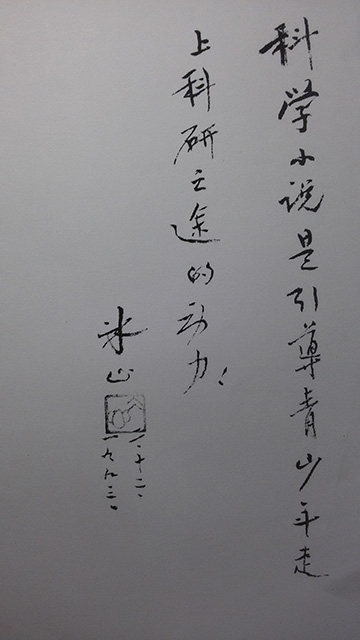 科学小说是引導青少年走
上科研之途的动力！
冰心
一、十二、
一九九三、